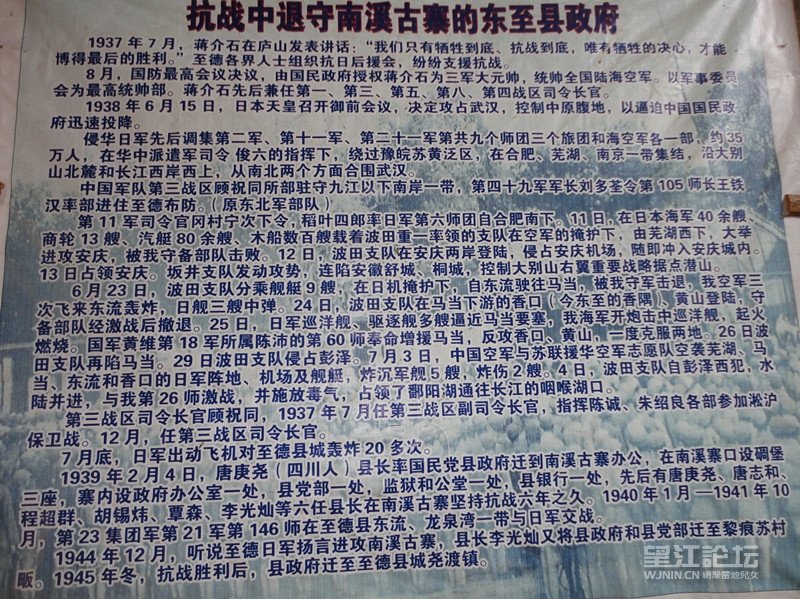 抗战中退守南溪古寨的东至县政府
1937年7月，蒋介石在庐山发表讲话：“我们只有牺牲到底、抗战到底，唯有牺牲的决心，才能
博得最后的胜利。”至德各界人士组织抗日后援会，纷纷支援抗战。
8月，国防最高会议决议，由国民政府授权蒋介石为三军大元帅，统帅全国陆海空军。以军事委员
会为最高统帅部。蒋介石先后兼任第一、第三、第五、第八、第四战区司令长官。
1938年6月15日，日本天皇召开御前会议，决定攻占武汉，控制中原腹地，以逼迫中国国民政
府迅速投降。
侵华日军先后调集第二军、第十一军、第二十一军第共九个师团三个旅团和海空军各一部，约35
万人，在华中派遣军司令 俊六的指挥下，绕过豫皖苏黄泛区，在合肥、芜湖、南京一带集结，沿大别
山北麓和长江西岸西上，从南北两个方面合围武汉。
中国军队第三战区顾祝同所部驻守九江以下南岸一带，第四十九军军长刘多荃令第105师长王铁
汉率部进住至德布防。（原东北军部队）
第11军司令官冈村宁次下令，稻叶四郎率日军第六师团自合肥南下。11日，在日本海军40余艘、
商轮13艘、汽艇80余艘、木船数百艘载着波田重一率领的支队在空军的掩护下，由芜湖西下，大举
进攻安庆，被我守备部队击败。12日，波田支队在安庆两岸登陆，侵占安庆机场，随即冲入安庆城内。
13日占领安庆。坂井支队发动攻势，连陷安徽舒城、桐城，控制大别山右翼重要战略据点潜山。
6月23日，波田支队分乘舰艇9艘，在日机掩护下，自东流驶往马当，被我守军击退，我空军三
次飞来东流轰炸，日舰三艘中弹。24日，波田支队在马当下游的香口（今东至的香隅）、黄山登陆，守
备部队经激战后撤退。25日，日军巡洋舰、驱逐舰多艘逼近马当要塞，我海军开炮击中巡洋舰，起火
燃烧。国军黄维第18军所属陈沛的第60师奉命增援马当，反攻香口、黄山，一度克服两地。26日波
田支队再陷马当。29日波田支队侵占彭泽。7月3日，中国空军与苏联援华空军志愿队空袭芜湖、马
当、东流和香口的日军阵地、机场及舰艇，炸沉军舰5艘，炸伤2艘。4日，波田支队自彭泽西犯，水
陆并进，与我第26师激战，并施放毒气，占领了鄱阳湖通往长江的咽喉湖口。
第三战区司令长官顾祝同，1937年7月任第三战区副司令长官，指挥陈诚、朱绍良各部参加淞沪
保卫战。12月，任第三战区司令长官。
7月底，日军出动飞机对至德县城轰炸20多次。
1939年2月4日，唐庚尧（四川人）县长率国民党县政府迁到南溪古寨办公，在南溪寨口设碉堡
三座，寨内设政府办公室一处，县党部一处，监狱和公堂一处，县银行一处，先后有唐庚尧、唐志和、
程超群、胡锡炜、覃森、李光灿等六任县长在南溪古寨坚持抗战六年之久。1940年1月—1941年10
月，第23集团军第21军第146师在至德县东流、龙泉湾一带与日军交战。
1944年12月，听说至德日军扬言进攻南溪古寨，县长李光灿又将县政府和县党部迁至黎痕苏村
畈。1945年冬，抗战胜利后，县政府迁至至德县城尧渡镇。
望江論坛
WJNIN.CN